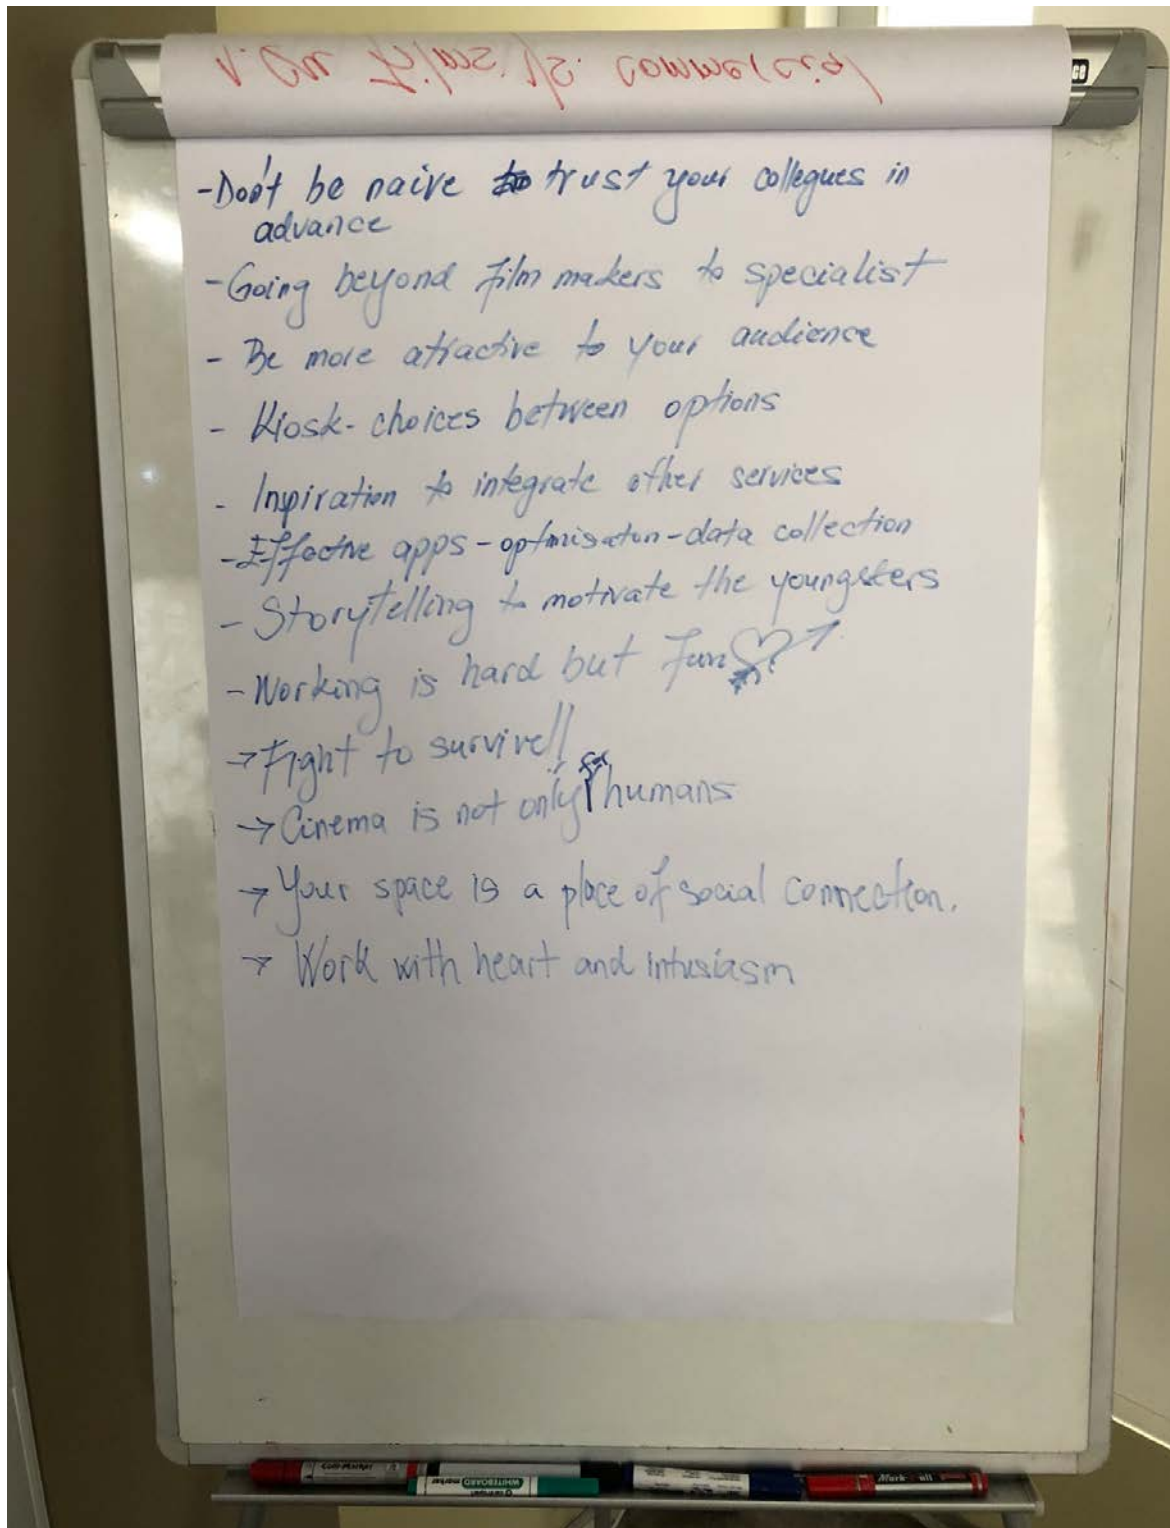 1. EU Films VS. commercial
-Don't be naive to trust your collegues in
advance
-Going beyond film makers to specialist
- Be more atractive to your audience
- Kiosk-choices between options
- Inpiration to integrate other services
-Effective apps-optmisaton-data collection
- Storytelling to motivate the youngsters
-Working is hard but Fun
→Fight to survive!!
→Cinema is not only for humans
→Your space is a place of social connection.
→ Work with heart and intusiasm
WHITEBOARD
marker